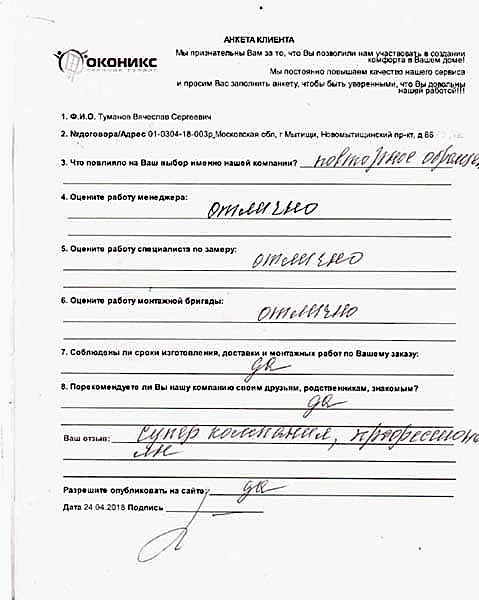 АНКЕТА КЛИЕНТА
ОКОНИКС
Мы признательны Вам за то, что Вы позволили нам участвовать в создании
комфорта в Вашем доме!
Мы постоянно повышаем качество нашего сервиса
и просим Вас заполнить анкету, чтобы быть уверенными, что Вы довольны
нашей работой!!!
1. Ф.И.О. Туманов Вячеслав Сергеевич
2. №договора/Адрес 01-0304-18-003р, Московская обл, г Мытищи, Новомытищинский пр-кт, д 86
3. Что повлияло на Ваш выбор именно нашей компании? повторное
4. Оцените работу менеджера:
отлично
5. Оцените работу специалиста по замеру:
отлично
6. Оцените работу монтажной бригады:
отлично
7. Соблюдены ли сроки изготовления, доставки и монтажных работ по Вашему заказу:
да
8. Порекомендуете ли Вы нашу компанию своим друзьям, родственникам, знакомым?
да
Ваш отзыв: супер компания, професcиона
лы
Разрешите опубликовать на сайте: да
Дата 24.04.2018 Подпись